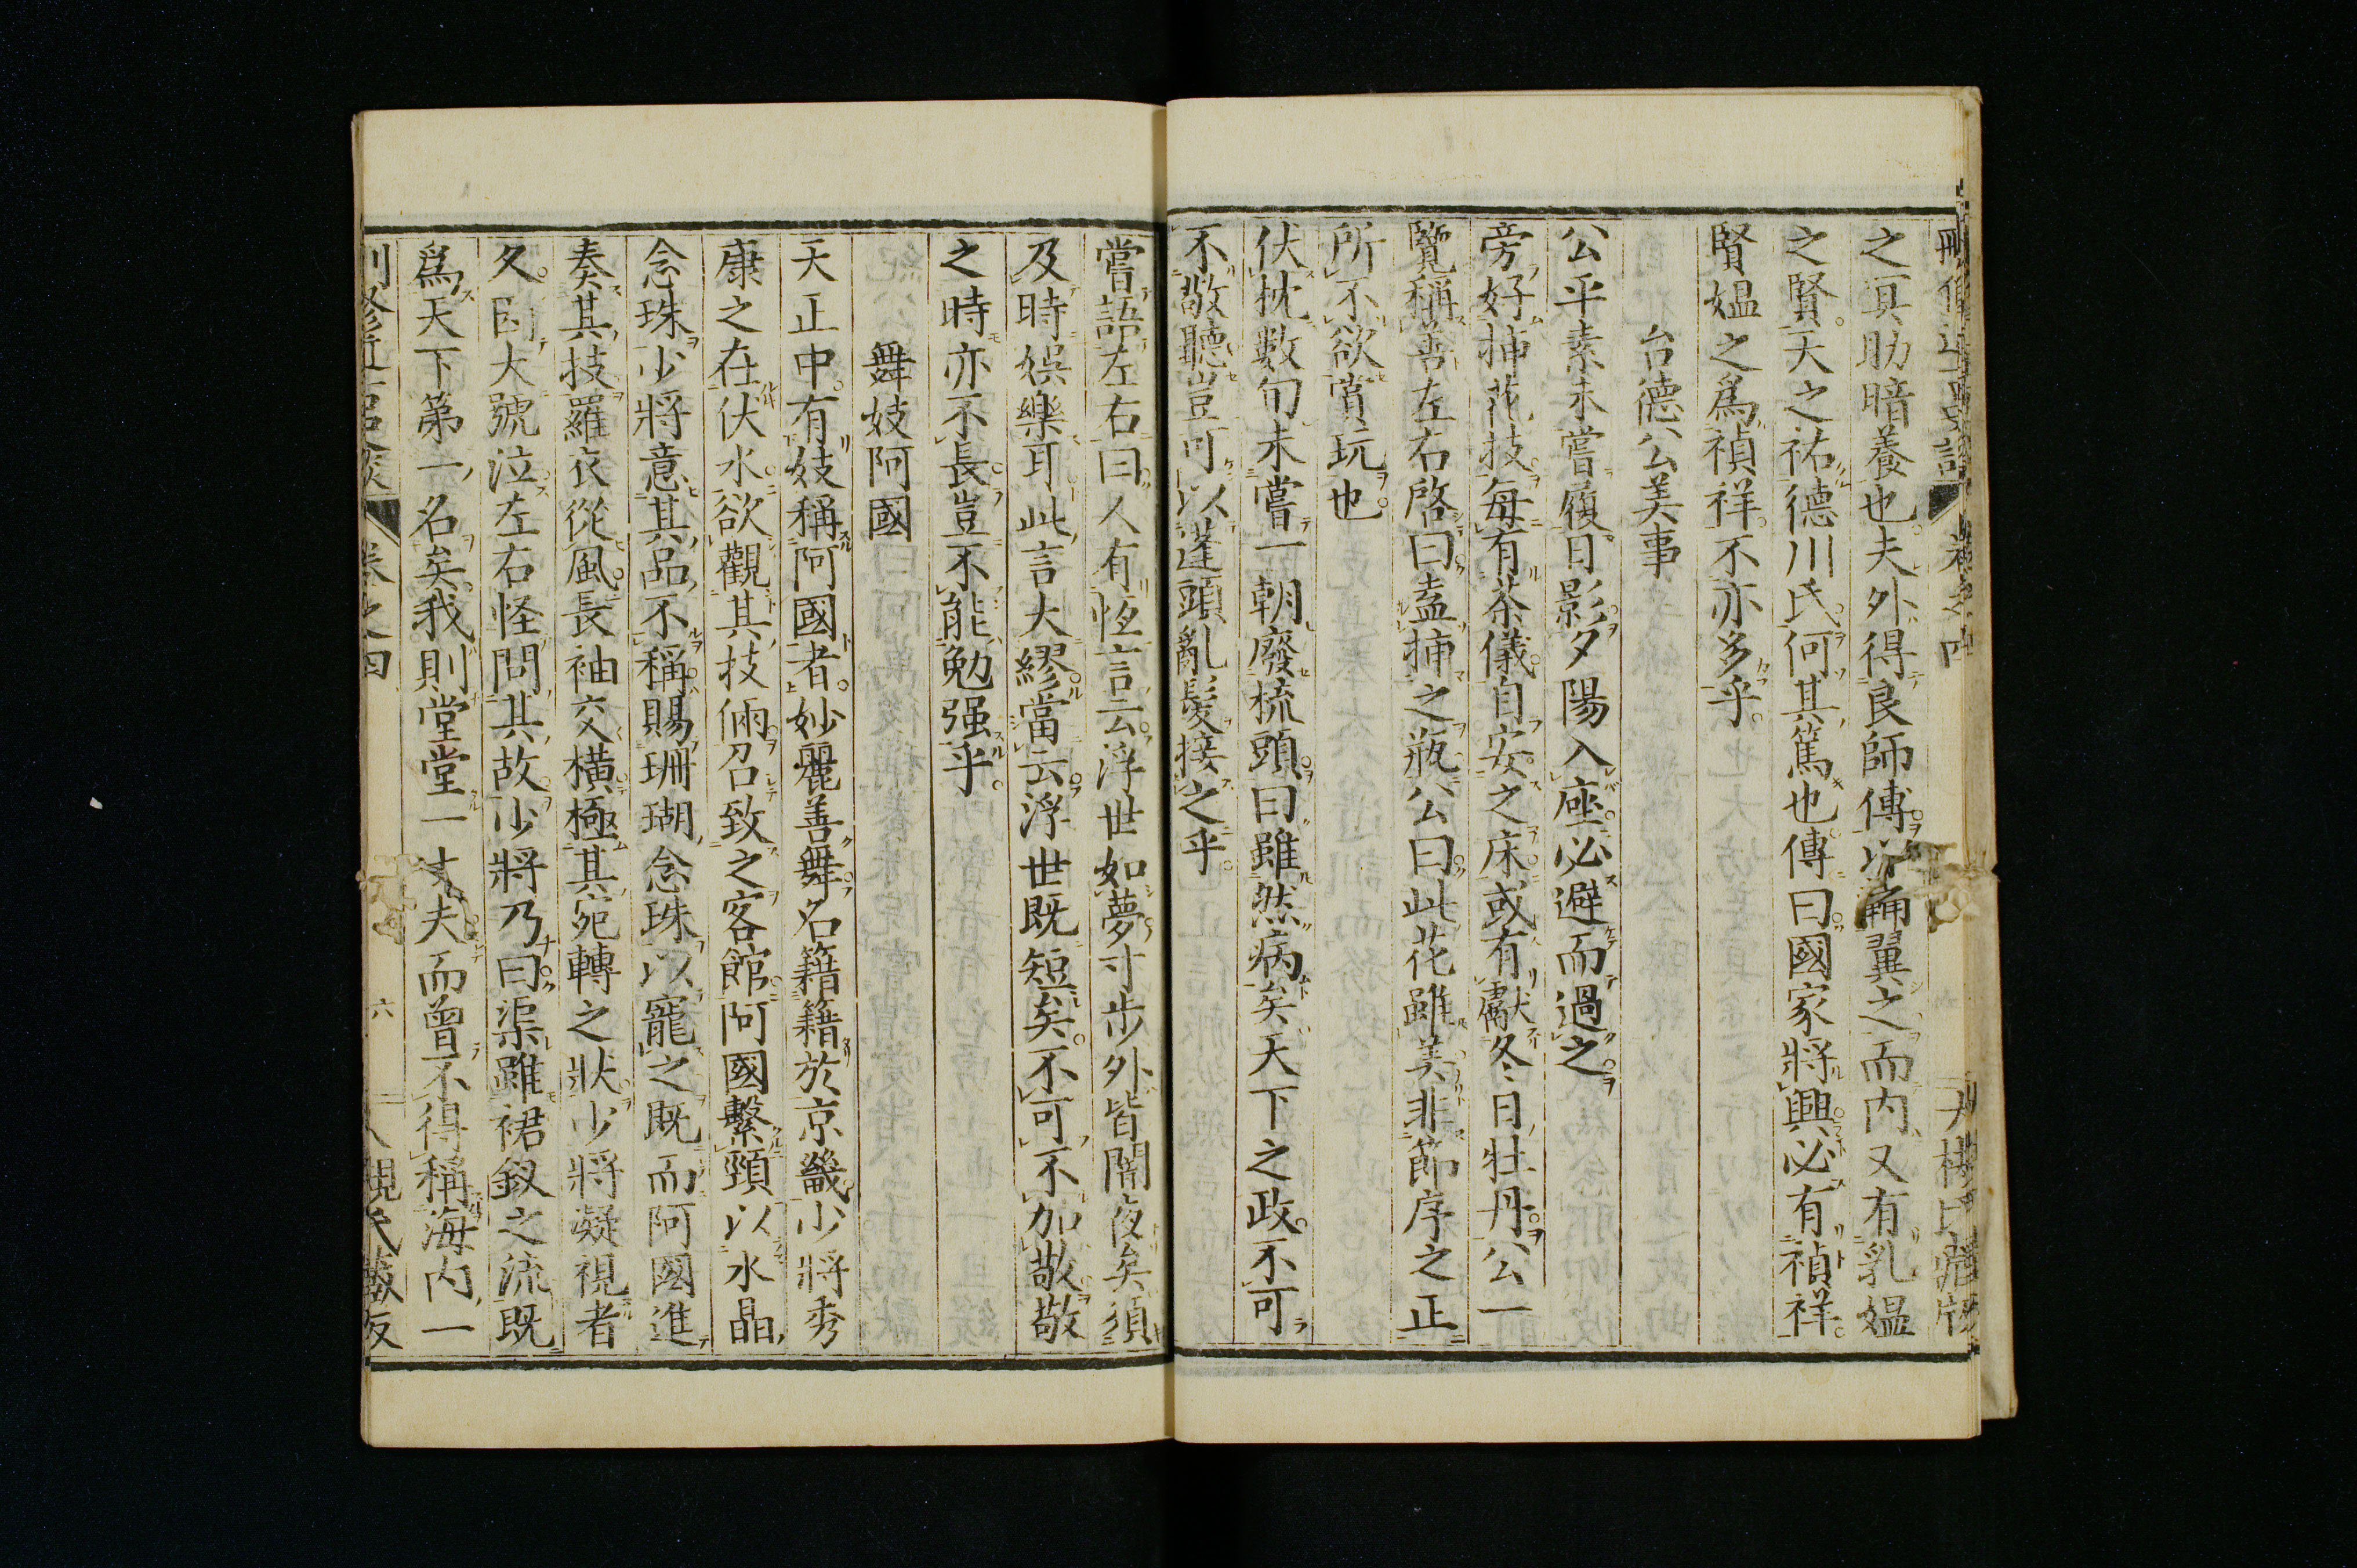 之冥助暗養也夫外得良師傅以羽翼之而内又有乳媼
之賢天之祐德川氏何其篤也傳曰國家將興必有禎祥
賢媼之爲禎祥不亦多乎
台德公美事
公平素未嘗履日影夕陽入座必避而過之
旁好挿花技每有茶儀自安之床或有獻冬日牡丹公一
覽稱善左右啓曰盍挿之瓶公曰此花雖美非節序之正
所不欲賞玩也
伏枕數旬未嘗一朝廢梳頭曰雖然病矣天下之政不可
不敬聽豈可以蓬頭亂髮接之乎
嘗語左右曰人有恆言云浮世如夢寸步外皆闇夜矣須
及時娯樂耳此言大繆當云浮世既短矣不可不加敬敬
之時亦不長豈不能勉强乎
舞妓阿國
天正中有妓稱阿國者妙麗善舞名籍籍於京畿少將秀
康之在伏水欲觀其技倆召致之客館阿國繫頸以水晶
念珠少將意其品不稱賜珊瑚念珠以寵之既而阿國進
奏其技羅衣從風長袖交橫極其宛轉之狀少將凝視者
久因大號泣左右怪問其故少將乃曰渠雖裙釵之流既
爲天下第一名矣我則堂堂一丈夫而曾不得稱海内一
卷之四 六